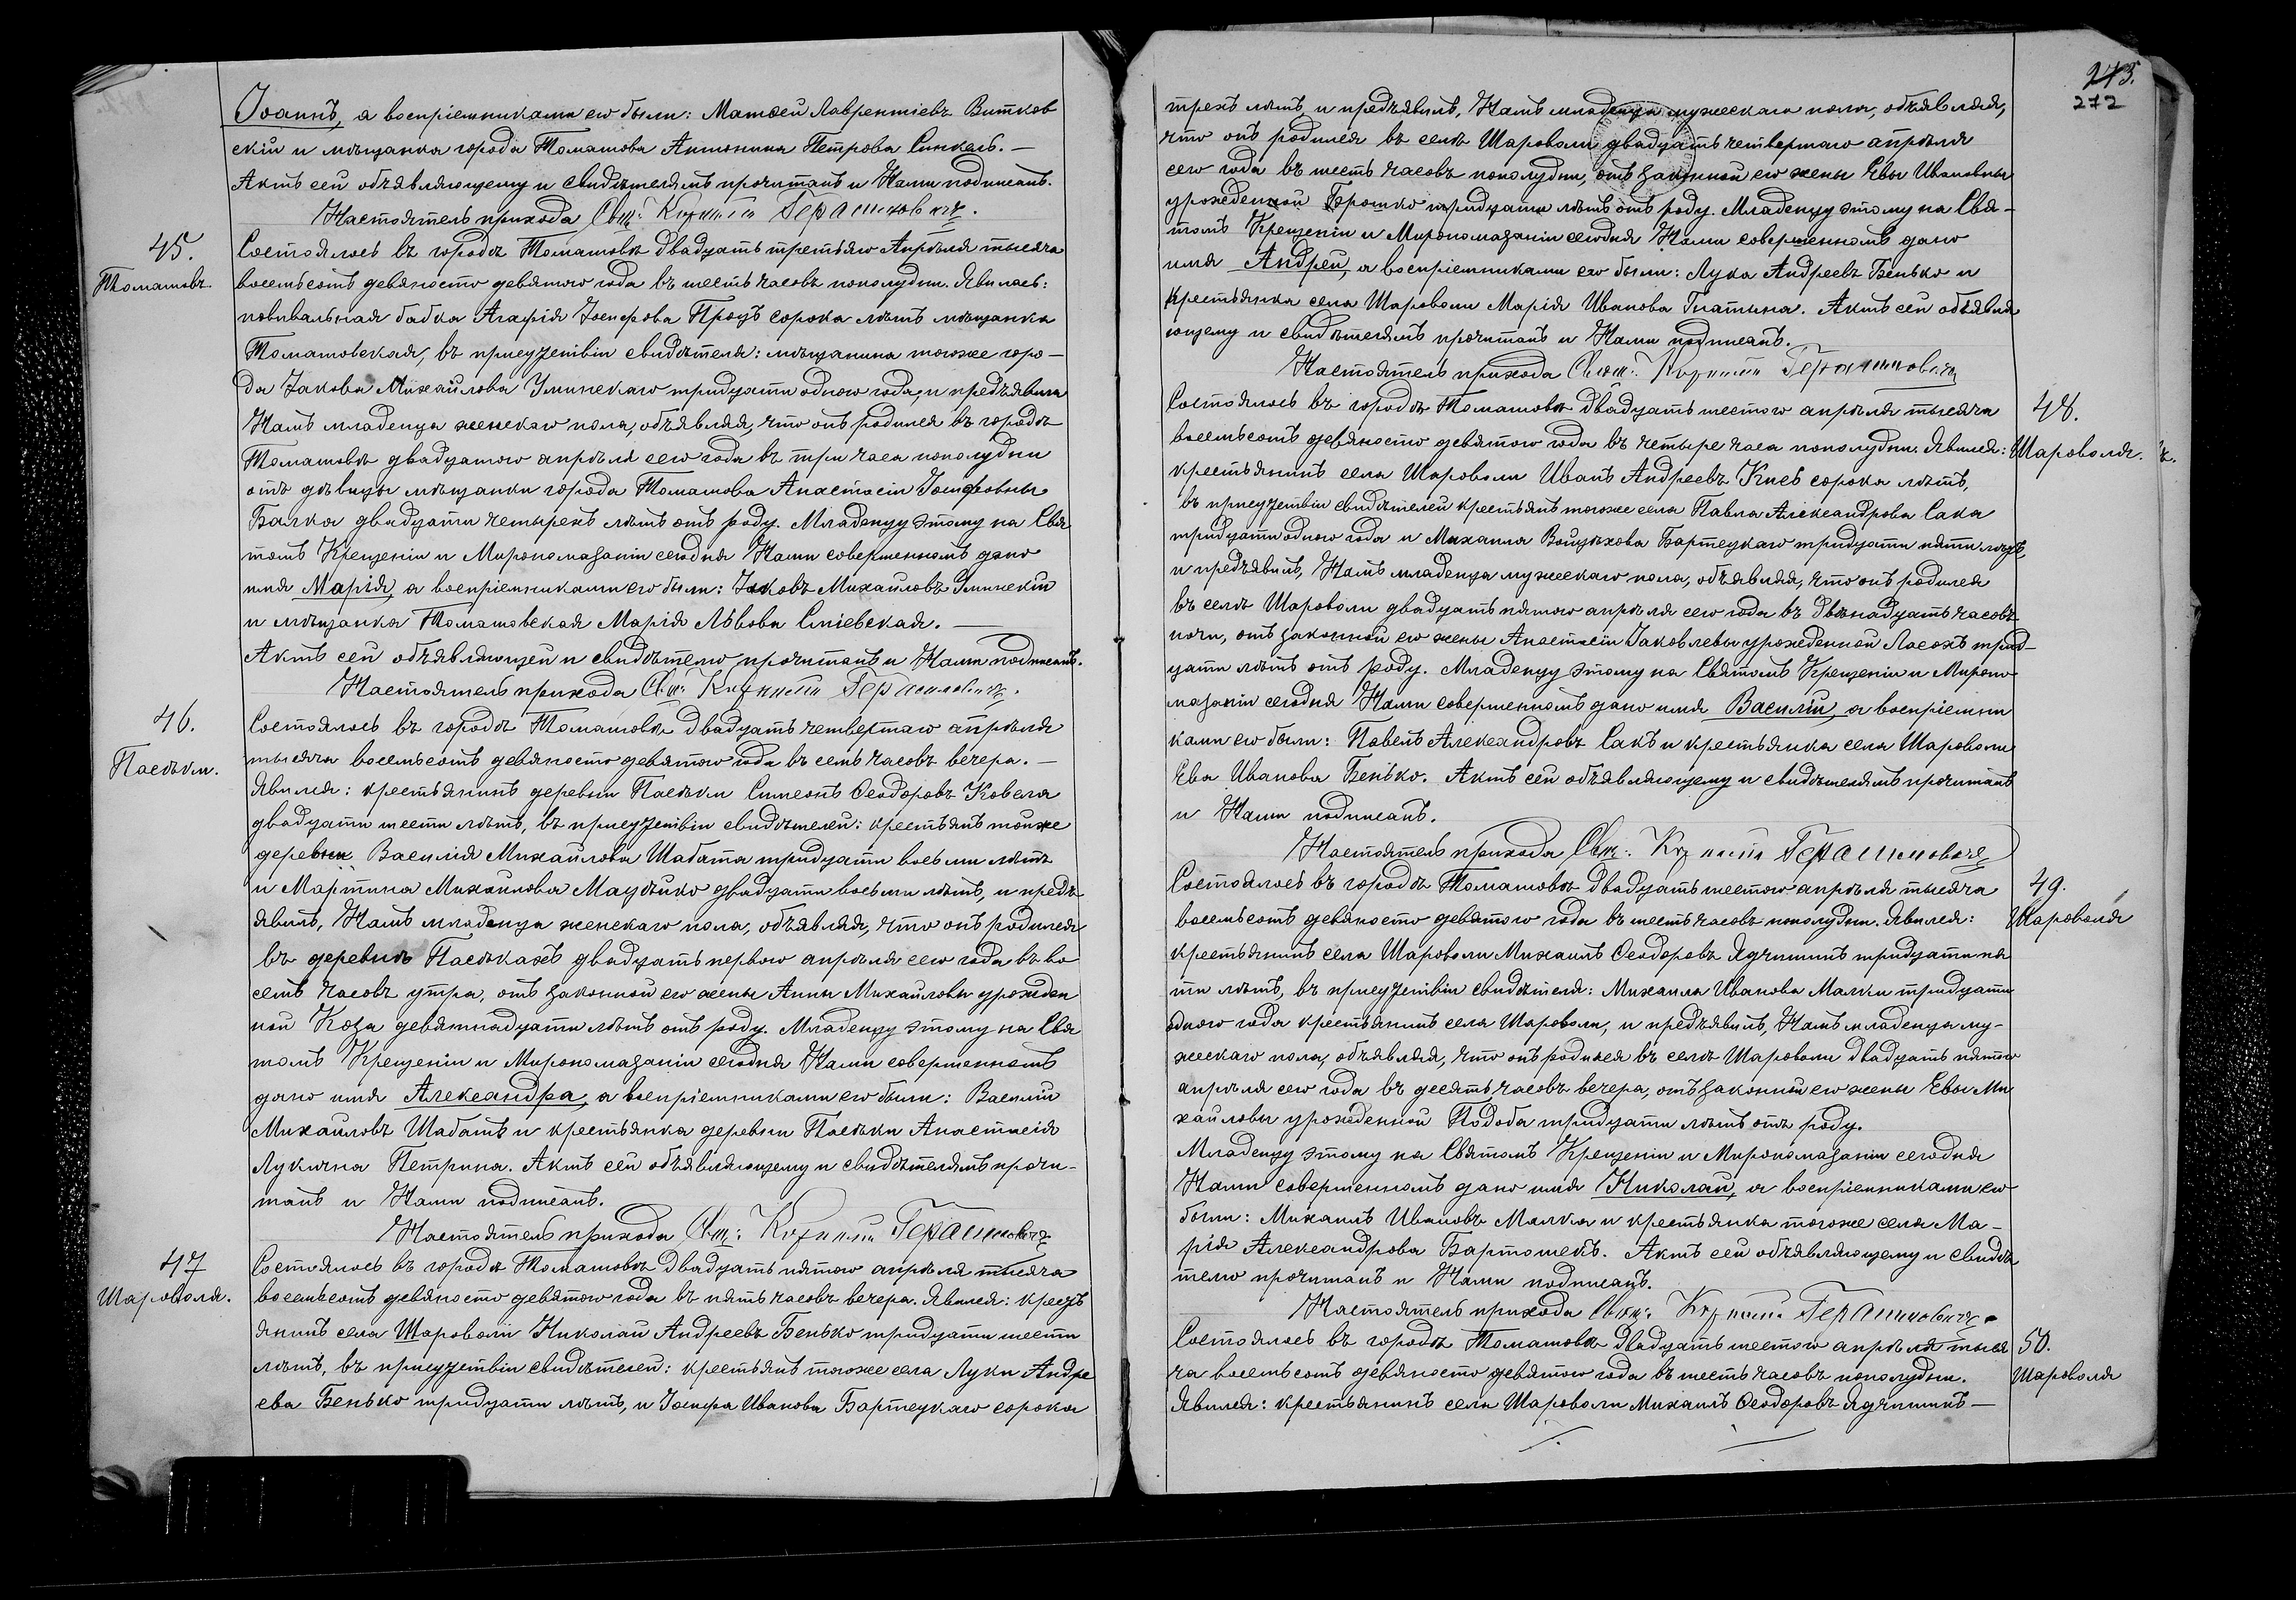 Іоаннъ, а воспріемниками его были: Матѳей Лаврентіевъ Витков
скій и мѣщанка города Томашова Антонина Петрова Синкевъ. —
Актъ сей объявляющему и свидѣтелямъ прочитанъ и Нами подписанъ.
Настоятель прихода Свщ: Герасимовичъ.
45.
Томашовъ
Состоялось въ городѣ Томашовѣ двадцать третьяго Апрѣля тысяча
восемьсотъ девяносто девятого года въ шесть часовъ пополудни. Явилась:
повивальная бабка Агафія Іосифова Проць сорока лѣтъ мѣщанка
Томашовская, въ присутствіи свидѣтеля: мѣщанина тогоже горо-
да Іакова Михайлова Улинскаго тридцати одного года, и предъявила
Намъ младенца женскаго пола, объявляя, что онъ родился въ городѣ
Томашовѣ двадцатого апрѣля сего года въ три часа пополудни
отъ дѣвицы мѣщанки города Томашова Анастасіи Іосифовны
Балка двадцати четырехъ лѣтъ отъ роду. Младенцу этому на Свя
томъ Крещеніи и Миропомазаніи сегодня Нами совершенномъ дано
имя Марія, а воспріемниками его были: Іаковъ Михайловъ Улинскій
и мѣщанка Томашовская Марія Львова Сніевская. —
Актъ сей объявляющей и свидѣтелю прочитанъ и Нами подписанъ.
Настоятель прихода Свщ: Герасимовичъ.
46.
Пасѣки.
Состоялось въ городѣ Томашовѣ двадцать четвертаго апрѣля
тысяча восемьсотъ девяносто девятого года въ семь часовъ вечера. —
Явился: крестьянинъ деревни Пасѣки Симеонъ Ѳеодоровъ Ковела
двадцати шести лѣтъ, въ присутствіи свидѣтелей: крестьянъ тойже
деревни Василія Михайлова Шабата тридцати восьми лѣтъ
и Мартина Михайлова Мацѣйко двадцати восьми лѣтъ, и предъ
явилъ, Намъ младенца женскаго пола, объявляя, что онъ родился
въ деревнѣ Пасѣкахъ двадцать первого апрѣля сего года въ во
семь часовъ утра, отъ законной его жены Анны Михайловы урожден
ной Коза девятнадцати лѣтъ отъ роду. Младенцу этому на Свя
томъ Крещеніи и Миропомазаніи сегодня Нами совершенномъ
дано имя Александра, а воспріемниками его были: Василій
Михайловъ Шабатъ и крестьянка деревни Пасѣки Анастасія
Лукична Петрина. Актъ сей объявляющему и свидѣтелямъ прочи-
танъ и Нами подписанъ.
Настоятель прихода Свщ: Герасимовичъ
47
Шароволя.
Состоялось въ городѣ Томашовѣ двадцать пятого апрѣля тысяча
восемьсотъ девяносто девятого года въ пять часовъ вечера. Явился: кресть
янинъ села Шароволи Николай Андреевъ Бенько тридцати шести
лѣтъ, въ присутствіи свидѣтелей: крестьянъ тогоже села Луки Андре
ева Бенько тридцати лѣтъ, и Іосифа Иванова Бартецкаго сорока
273.
272
трехъ лѣтъ и предъявилъ, Намъ младенца мужескаго пола, объявляя,
что онъ родился въ селѣ Шароволи двадцать четвертого апрѣля
сего года въ шесть часовъ пополудни, отъ законной его жены Евы Ивановны
урожденной Брошко тридцати лѣтъ отъ роду. Младенцу этому на Свя-
томъ Крещеніи и Миропомазаніи сегодня Нами совершенномъ дано
имя Андрей, а воспріемниками его были: Лука Андреевъ Бенько и
крестьянка села Шароволи Марія Иванова Гнатына. Актъ сей объявля
ющему и свидѣтелямъ прочитанъ и Нами подписанъ.
Настоятель прихода Свящ: Герасимовичъ
48.
Шароволя.
Состоялось въ городѣ Томашовѣ двадцать шестого апрѣля тысяча
восемьсотъ девяносто девятого года въ четыре часа пополудни. Явился:
крестьянинъ села Шароволи Иванъ Андреевъ Кнесь сорока лѣтъ,
въ присутствіи свидѣтелей крестьянъ тогоже села Павла Александрова Сака
тридцати одного года и Михаила Войцѣхова Бартецкаго тридцати пяти лѣтъ,
и предъявилъ, Намъ младенца мужескаго пола, объявляя, что онъ родился
въ селѣ Шароволи двадцать пятого апрѣля сего года въ двѣнадцать часовъ
ночи, отъ законной его жены Анастасіи Іаковлевы урожденной Ласохъ трид-
цати лѣтъ отъ роду. Младенцу этому на Святомъ Крещеніи и Миропо
мазаніи сегодня Нами совершенномъ дано имя Василій, а воспріемни
ками его были: Павелъ Александровъ Сакъ и крестьянка села Шароволи
Ева Иванова Бенько. Актъ сей объявляющему и свидѣтелямъ прочитанъ
и Нами подписанъ.
Настоятель прихода Свщ: Герасимовичъ
49.
Шароволя
Состоялось въ городѣ Томашовѣ двадцать шестого апрѣля тысяча
восемьсотъ девяносто девятого года въ шесть часовъ пополудни. Явился:
крестьянинъ села Шароволи Михаилъ Ѳеодоровъ Ядчишинъ тридцати пя
ти лѣтъ, въ присутствіи свидѣтеля: Михаила Иванова Малки тридцати
одного года крестьянинъ села Шароволи, и предъявилъ, Намъ младенца му-
жескаго пола, объявляя, что онъ родился въ селѣ Шароволи двадцать пятого
апрѣля сего года въ десять часовъ вечера, отъ законной его жены Евы Ми
хайловы урожденной Подоба тридцати лѣтъ отъ роду.
Младенцу этому на Святомъ Крещеніи и Миропомазаніи сегодня
Нами совершенномъ дано имя Николай, а воспріемниками его
были: Михаилъ Ивановъ Малка и крестьянка тогоже села Ма-
рія Александрова Бартошекъ. Актъ сей объявляющему и свидѣ
телю прочитанъ и Нами подписанъ.
Настоятель прихода Свящ: Герасимовичъ.
50.
Шароволя
Состоялось въ городѣ Томашовѣ двадцать шестого апрѣля тыся
ча восемьсотъ девяносто девятого года въ шесть часовъ пополудни.
Явился: крестьянинъ села Шароволи Михаилъ Ѳеодоровъ Ядчишинъ —